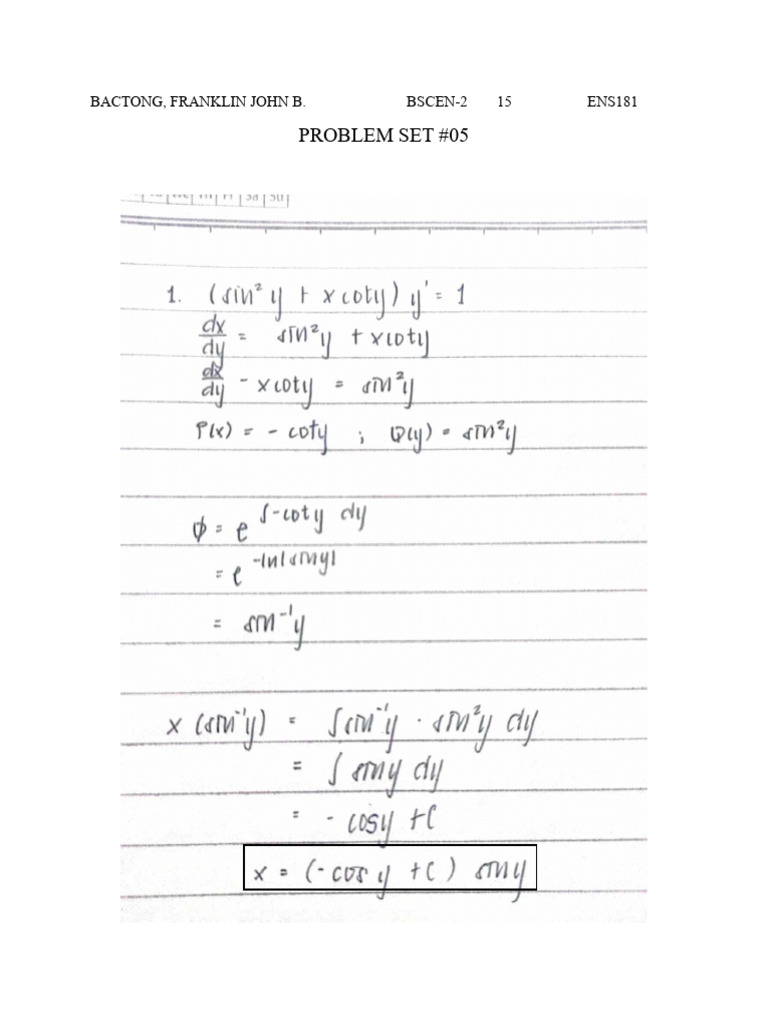 BACTONG, FRANKLIN JOHN B. BSCEN-2 15 ENS181
PROBLEM SET #05
1. (sin² y + x coty) y' = 1
dx/dy = sin²y + xcoty
dx/dy - xcoty = sin²y
P(x) = - coty ; Q(y) = sin²y
φ = e^∫-coty dy
= e^-ln|siny|
= sin⁻¹y
x (sin⁻¹y) = ∫sin⁻¹y · sin²y dy
= ∫ siny dy
= - cosy + C
x = (-cos y + C) siny